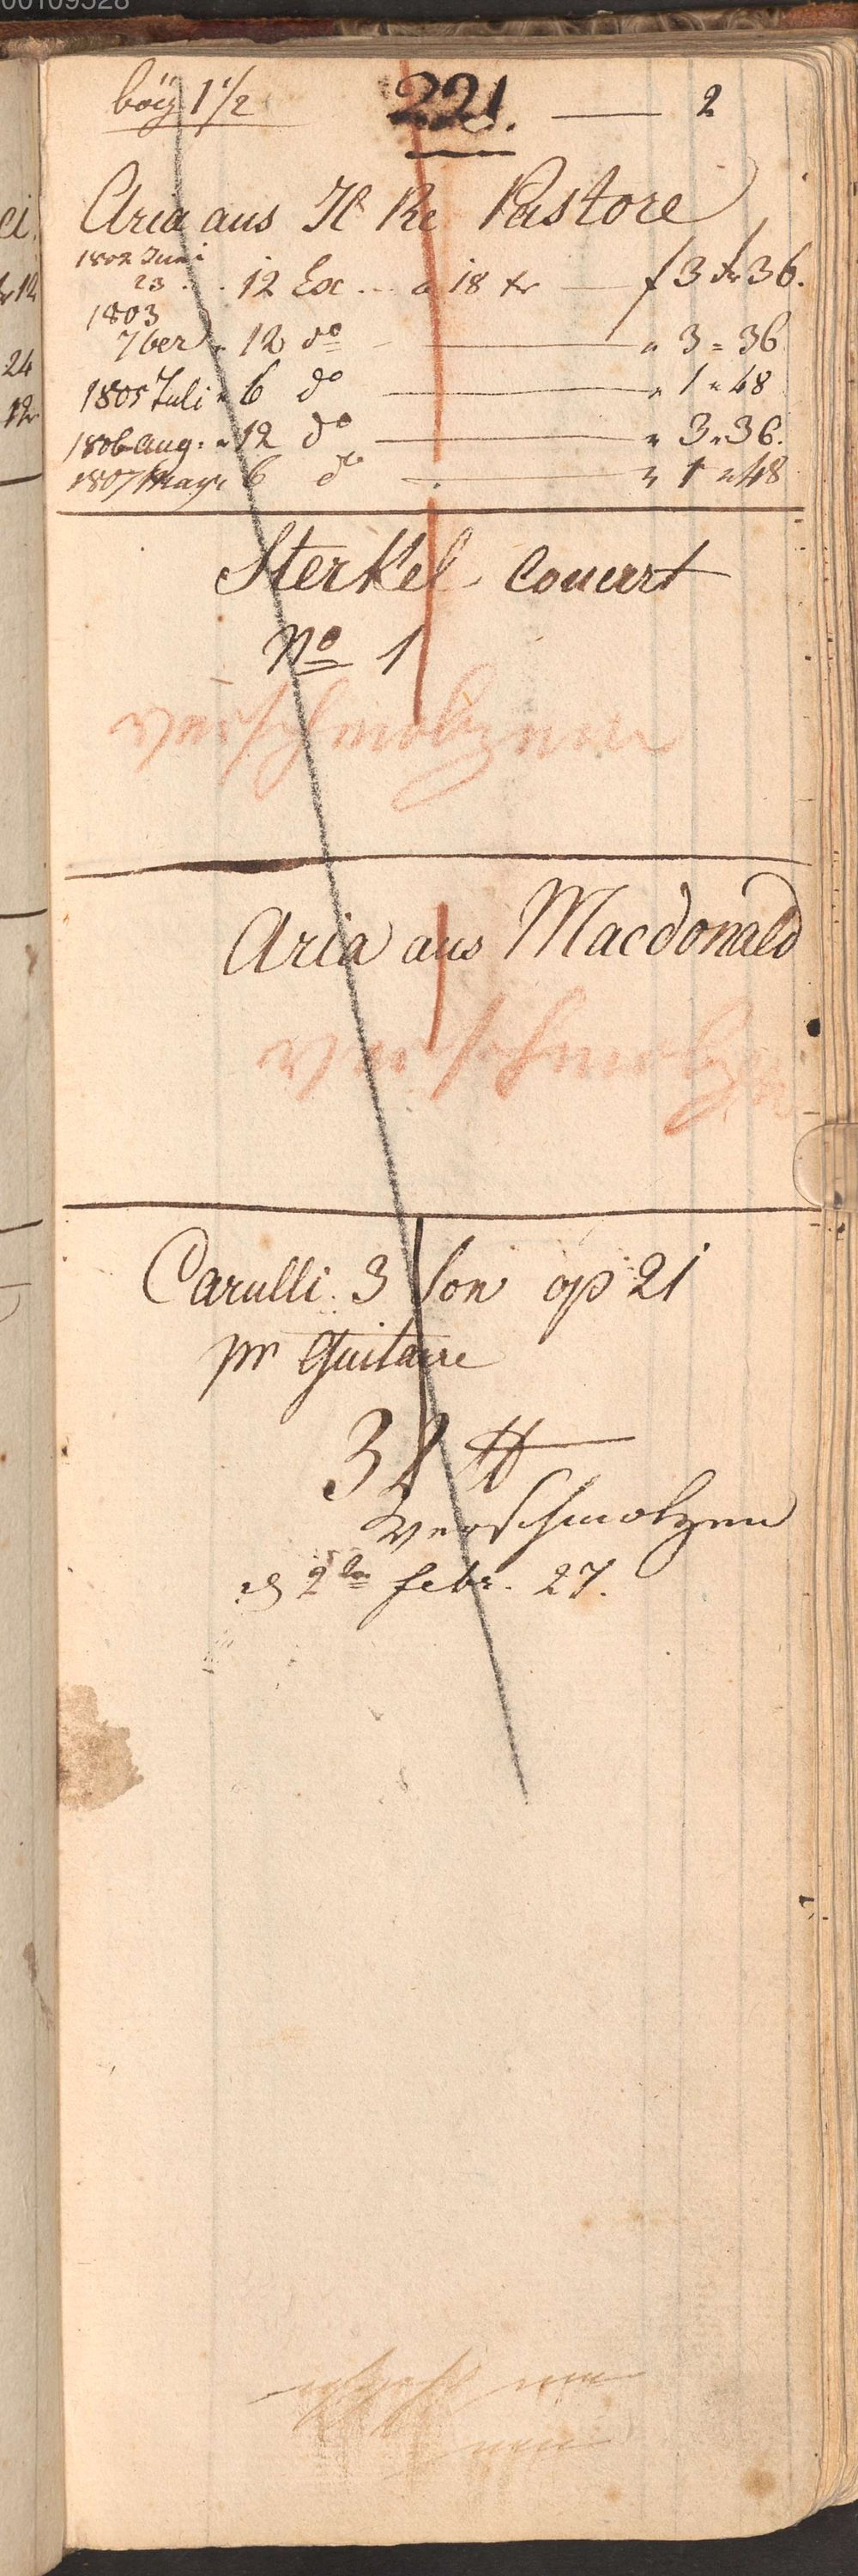 00109528
bög 1 1/2 221. — 2
Aria aus Il Re Pastore
1802 Juni
23 . . 12 Ex... a 18 xr — f 3 xr 36.
1803
7ber " 12 do — " 3 " 36
1805 Juli " 6 do — " 1 " 48
1806 Aug. " 12 do — " 3 " 36.
1807 May " 6 do — " 1 " 48
Sterkel Concert
No 1
verschmolzenn
Aria aus Macdonald
verschmolzen
Carulli 3 Son op 21
pr Guitarre
38 ℔
verschmolzen
2ten febr. 27.